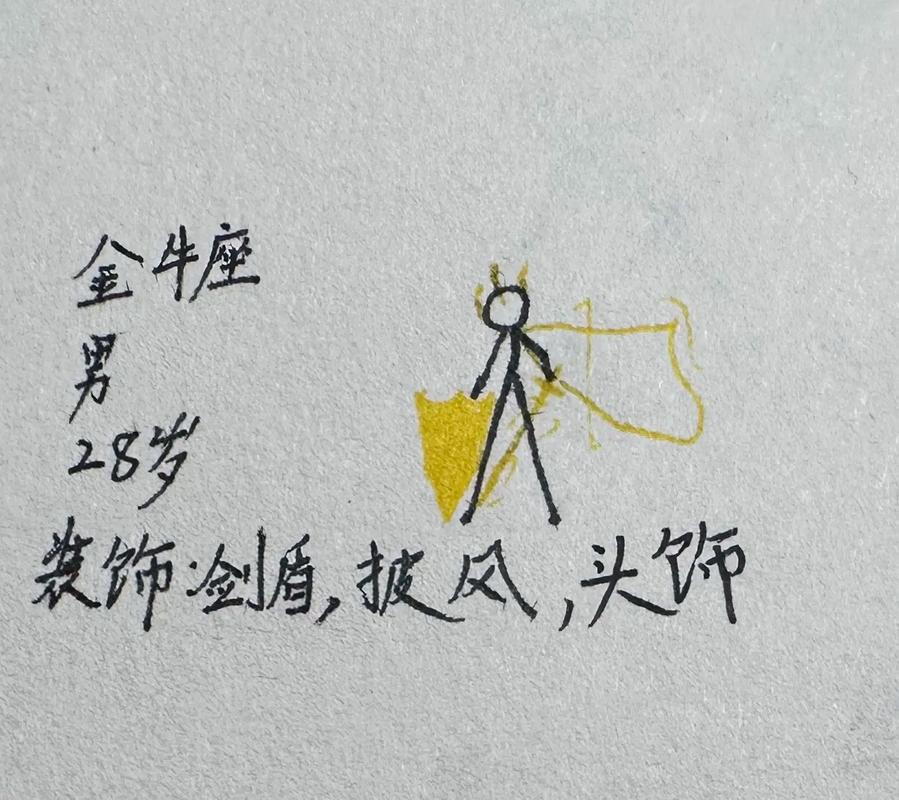 金牛座
男
28岁
装饰:剑盾,披风,头饰